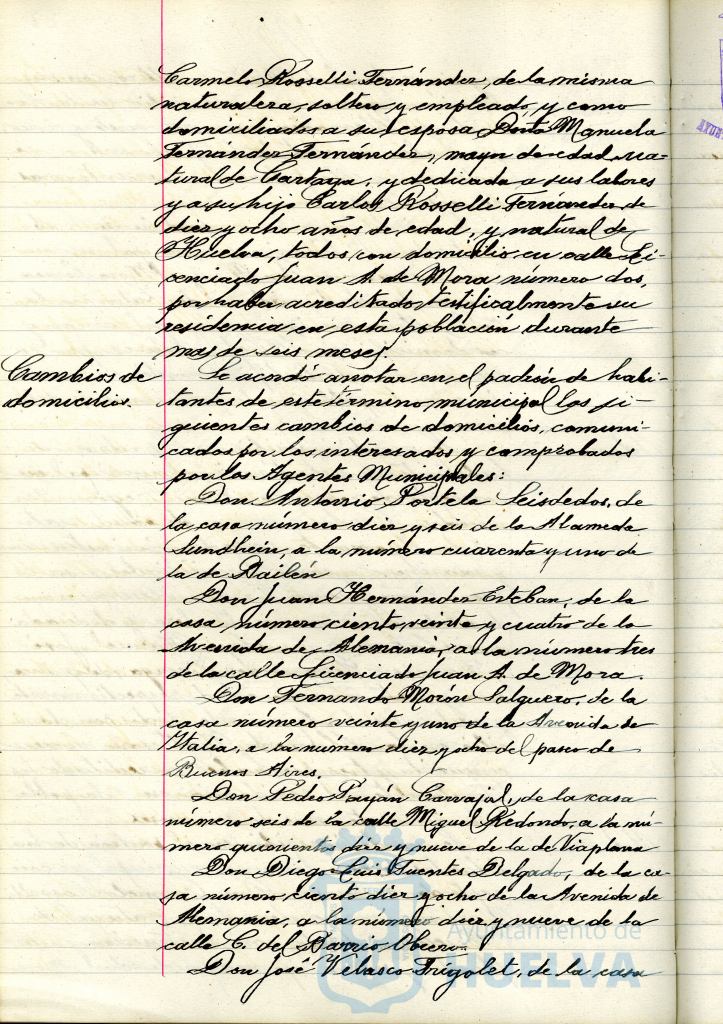 Carmelo Rosselli Fernández, de la misma
naturaleza, soltero, y empleado, y como
domiciliados a su esposa Doña Manuela
Fernández Fernández, mayor de edad, na-
tural de Cartaya, y dedicada a sus labores
y a su hijo Carlos Rosselli Fernández, de
diez y ocho años de edad, y natural de
Huelva, todos con domicilio en calle Li-
cenciado Juan A. de Mora número dos,
por haber acreditado testificalmente su
residencia en esta población durante
mas de seis meses.
Cambios de
domicilios.
Se acordó anotar en el padrón de habi-
tantes de este término municipal los si-
guientes cambios de domicilios, comuni-
cados por los interesados y comprobados
por los Agentes Municipales:
Don Antonio Portela Seisdedos, de
la casa número diez y seis de la Alameda
Sundhein, a la número cuarenta y uno de
la de Bailén
Don Juan Hernández Esteban, de la
casa número ciento veinte y cuatro de la
Avenida de Alemania, a la número tres
de la calle Licenciado Juan A. de Mora.
Don Fernando Morón Salguero, de la
casa número veinte y uno de la Avenida de
Italia, a la número diez y ocho del paseo de
Buenos Aires.
Don Pedro Payán Carvajal, de la casa
número seis de la calle Miguel Redondo, a la nú-
mero quinientos diez y nueve de la de Viaplana
Don Diego Luis Fuentes Delgado, de la ca-
sa número ciento diez y ocho de la Avenida de
Alemania, a la número diez y nueve de la
calle C. del Barrio Obrero.
Don José Velasco Frigolet, de la casa
Ayuntamiento de
HUELVA